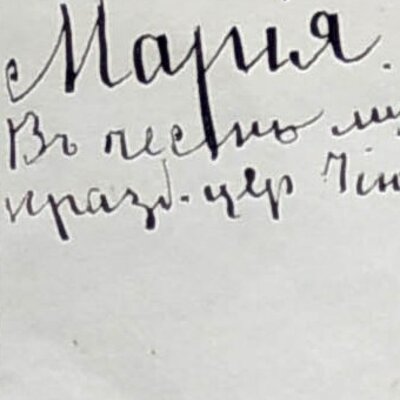 Марія.
Въ честь му
празд. цер Іін